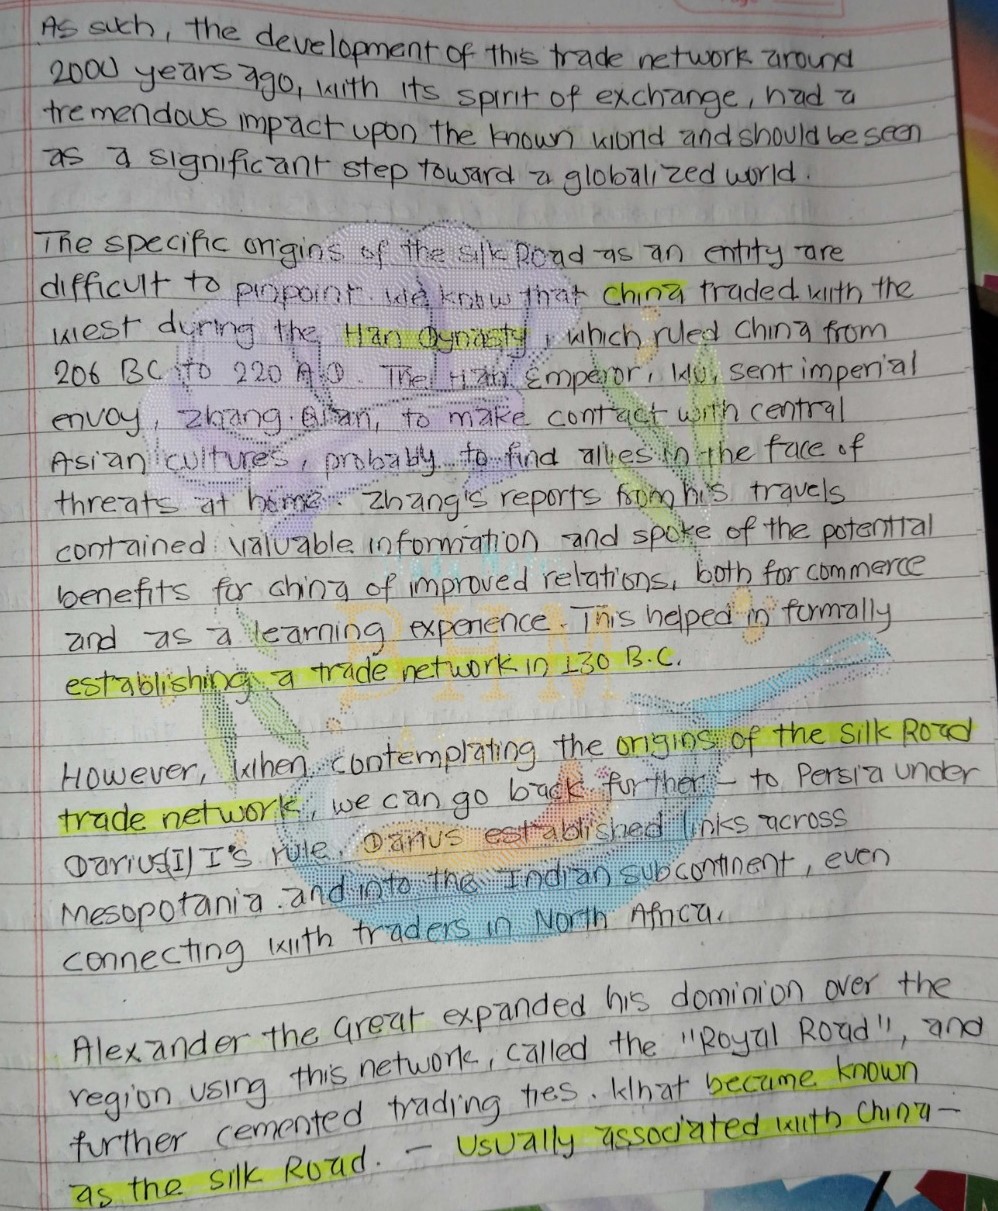 As such, the development of this trade network around
2000 years ago, with its spirit of exchange, had a
tremendous impact upon the known world and should be seen
as a significant step toward a globalized world.
The specific origins of the Silk Road as an entity are
difficult to pinpoint. We know that China traded with the
west during the Han Dynasty, which ruled China from
206 BC to 220 A.D. The Han Emperor, Wu, sent imperial
envoy, Zhang Qian, to make contact with central
Asian cultures, probably to find allies in the face of
threats at home. Zhang's reports from his travels
contained valuable information and spoke of the potential
benefits for China of improved relations, both for commerce
and as a learning experience. This helped in formally
establishing a trade network in 130 B.C.
However, when contemplating the origins of the Silk Road
trade network, we can go back further - to Persia under
Darius(I) I's rule. Darius established links across
Mesopotania and into the Indian subcontinent, even
connecting with traders in North Africa.
Alexander the Great expanded his dominion over the
region using this network, called the "Royal Road", and
further cemented trading ties. What became known
as the Silk Road. - Usually associated with China -
BHM